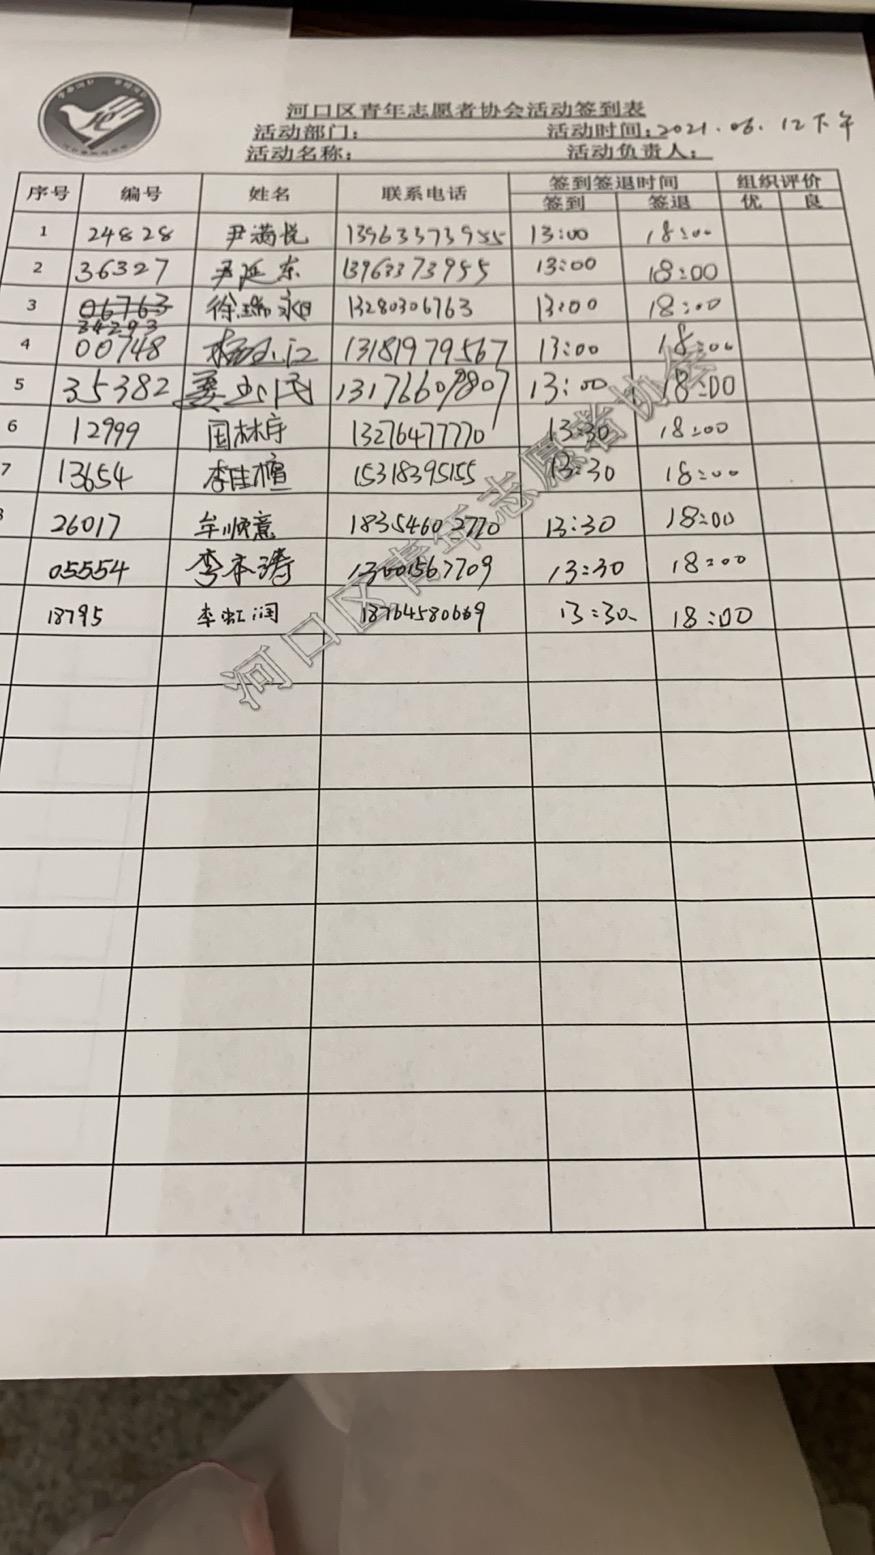 河口区青年志愿者协会活动签到表
活动部门: 活动时间: 2021.06.12下午
活动名称: 活动负责人:
序号 编号 姓名 联系电话 签到签退时间 组织评价
签到 签退 优 良
1 24828 尹满悦 13963373955 13:00 18:00
2 36327 尹延东 13963373955 13:00 18:00
3 06763 徐瑞 13280306763 13:00 18:00
34293
4 00748 13181979567 13:00 18:00
5 35382 13176609807 13:00 18:00
6 12999 国林宇 13276477770 13:30 18:00
7 13654 李佳檀 15318395155 13:30 18:00
26017 牟顺意 18354602770 13:30 18:00
05554 李本涛 13001567709 13:30 18:00
18795 李虹润 18764580669 13:30 18:00
河口区青年志愿者协会